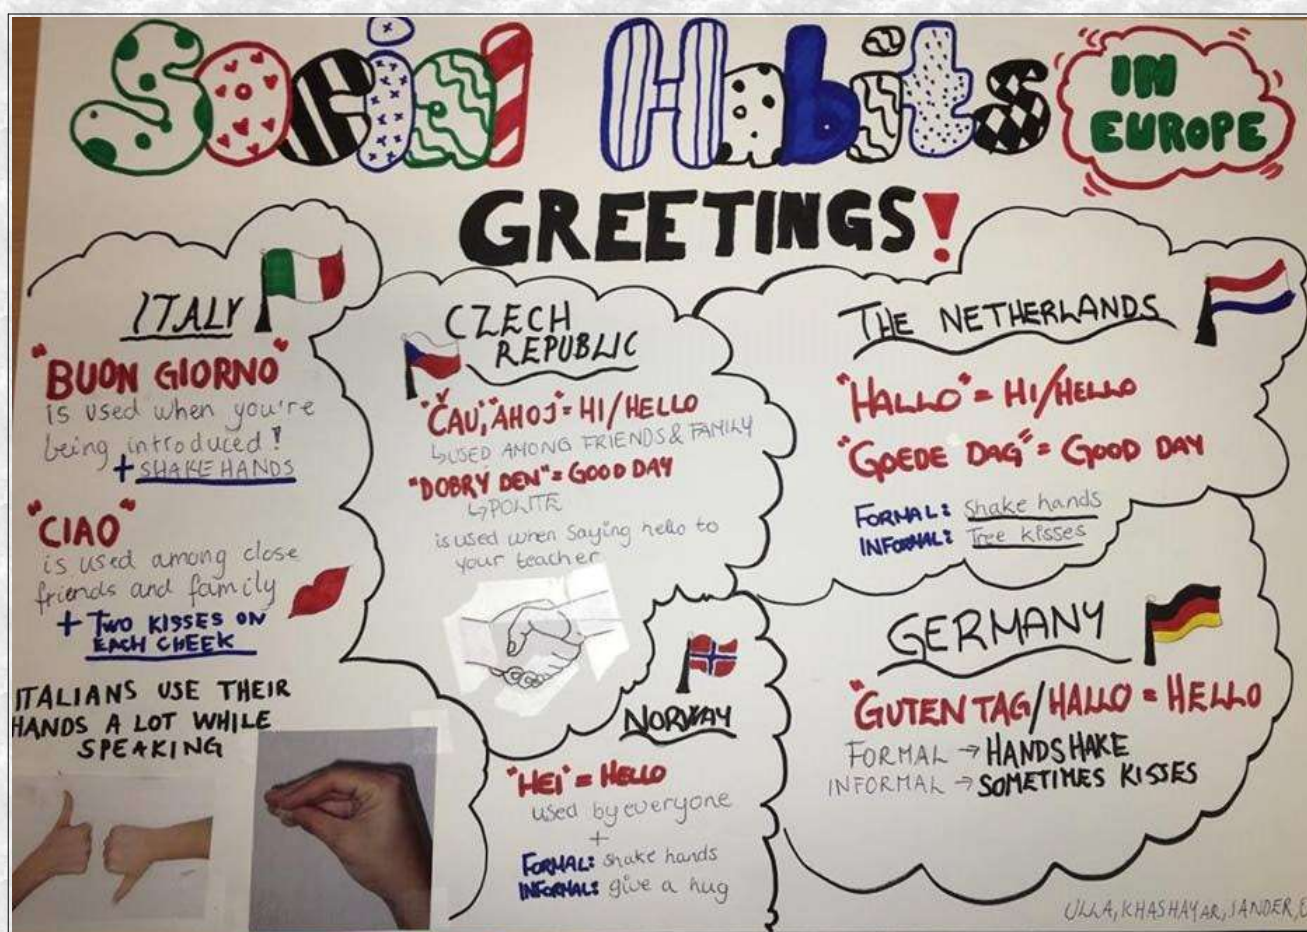 Social Habits
IN
EUROPE
GREETINGS!
ITALY
"BUON GIORNO"
is used when you're
being introduced!
+ SHAKE HANDS
"CIAO"
is used among close
friends and family
+ TWO KISSES ON
EACH CHEEK
ITALIANS USE THEIR
HANDS A LOT WHILE
SPEAKING
CZECH
REPUBLIC
"ČAU", "AHOJ" = HI/HELLO
↳ USED AMONG FRIENDS & FAMILY
"DOBRÝ DEN" = GOOD DAY
↳ POLITE
is used when saying hello to
your teacher
NORWAY
"HEI" = HELLO
used by everyone
+
FORMAL: shake hands
INFORMAL: give a hug
THE NETHERLANDS
"HALLO" = HI/HELLO
"GOEDE DAG" = GOOD DAY
FORMAL: Shake hands
INFORMAL: Tree kisses
GERMANY
"GUTEN TAG/HALLO = HELLO
FORMAL → HANDSHAKE
INFORMAL → SOMETIMES KISSES
ULLA, KHASHAYAR, SANDER,